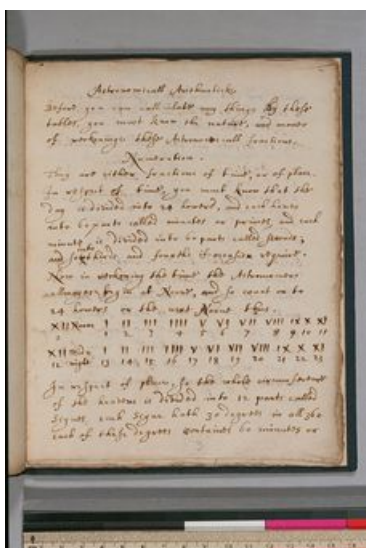 Astronomicall Arithmeticke.
Before you can calculate any thing by these
tables, you must know the nature, and maner
of reckoninge these Astronomicall fractions.
Numeration.
They are either fractions of time, or of place.
In respect of time, you must know that the
day is divided into 24 houres, and each houre
into 60 parts called minutes or primes, and each
minute is divided into 60 parts called seconds,
and into thirds, and fourths if occasion require.
Now in reckoning the time the Astronomers
begin at Noone, and so count on to
24 houres or the next Noone thus.
XII Noon I II III IIII V VI VII VIII IX X XI
0 1 2 3 4 5 6 7 8 9 10 11
XII Mid I II III IIII V VI VII VIII IX X XI
12 night 13 14 15 16 17 18 19 20 21 22 23
In respect of place, so the whole circumference
of the heavens is divided into 12 parts called
Signes, each Signe hath 30 degrees in all 360
each of these degrees containes 60 minutes or